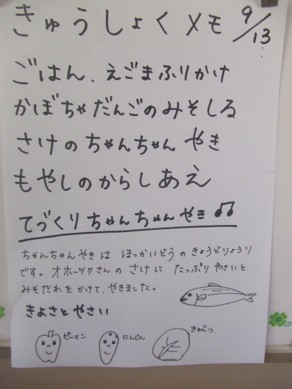 きゅうしょくメモ 9/13
ごはん、えごまふりかけ
かぼちゃだんごのみそしる
さけのちゃんちゃんやき
もやしのからしあえ
てづくりちゃんちゃんやき♫
ちゃんちゃんやきは ほっかいどうの きょうどりょうり
です。オホーツクさんの さけに たっぷり やさいと
みそだれを かけて、やきました。
きよさと やさい
ピーマン にんじん きゃべつ